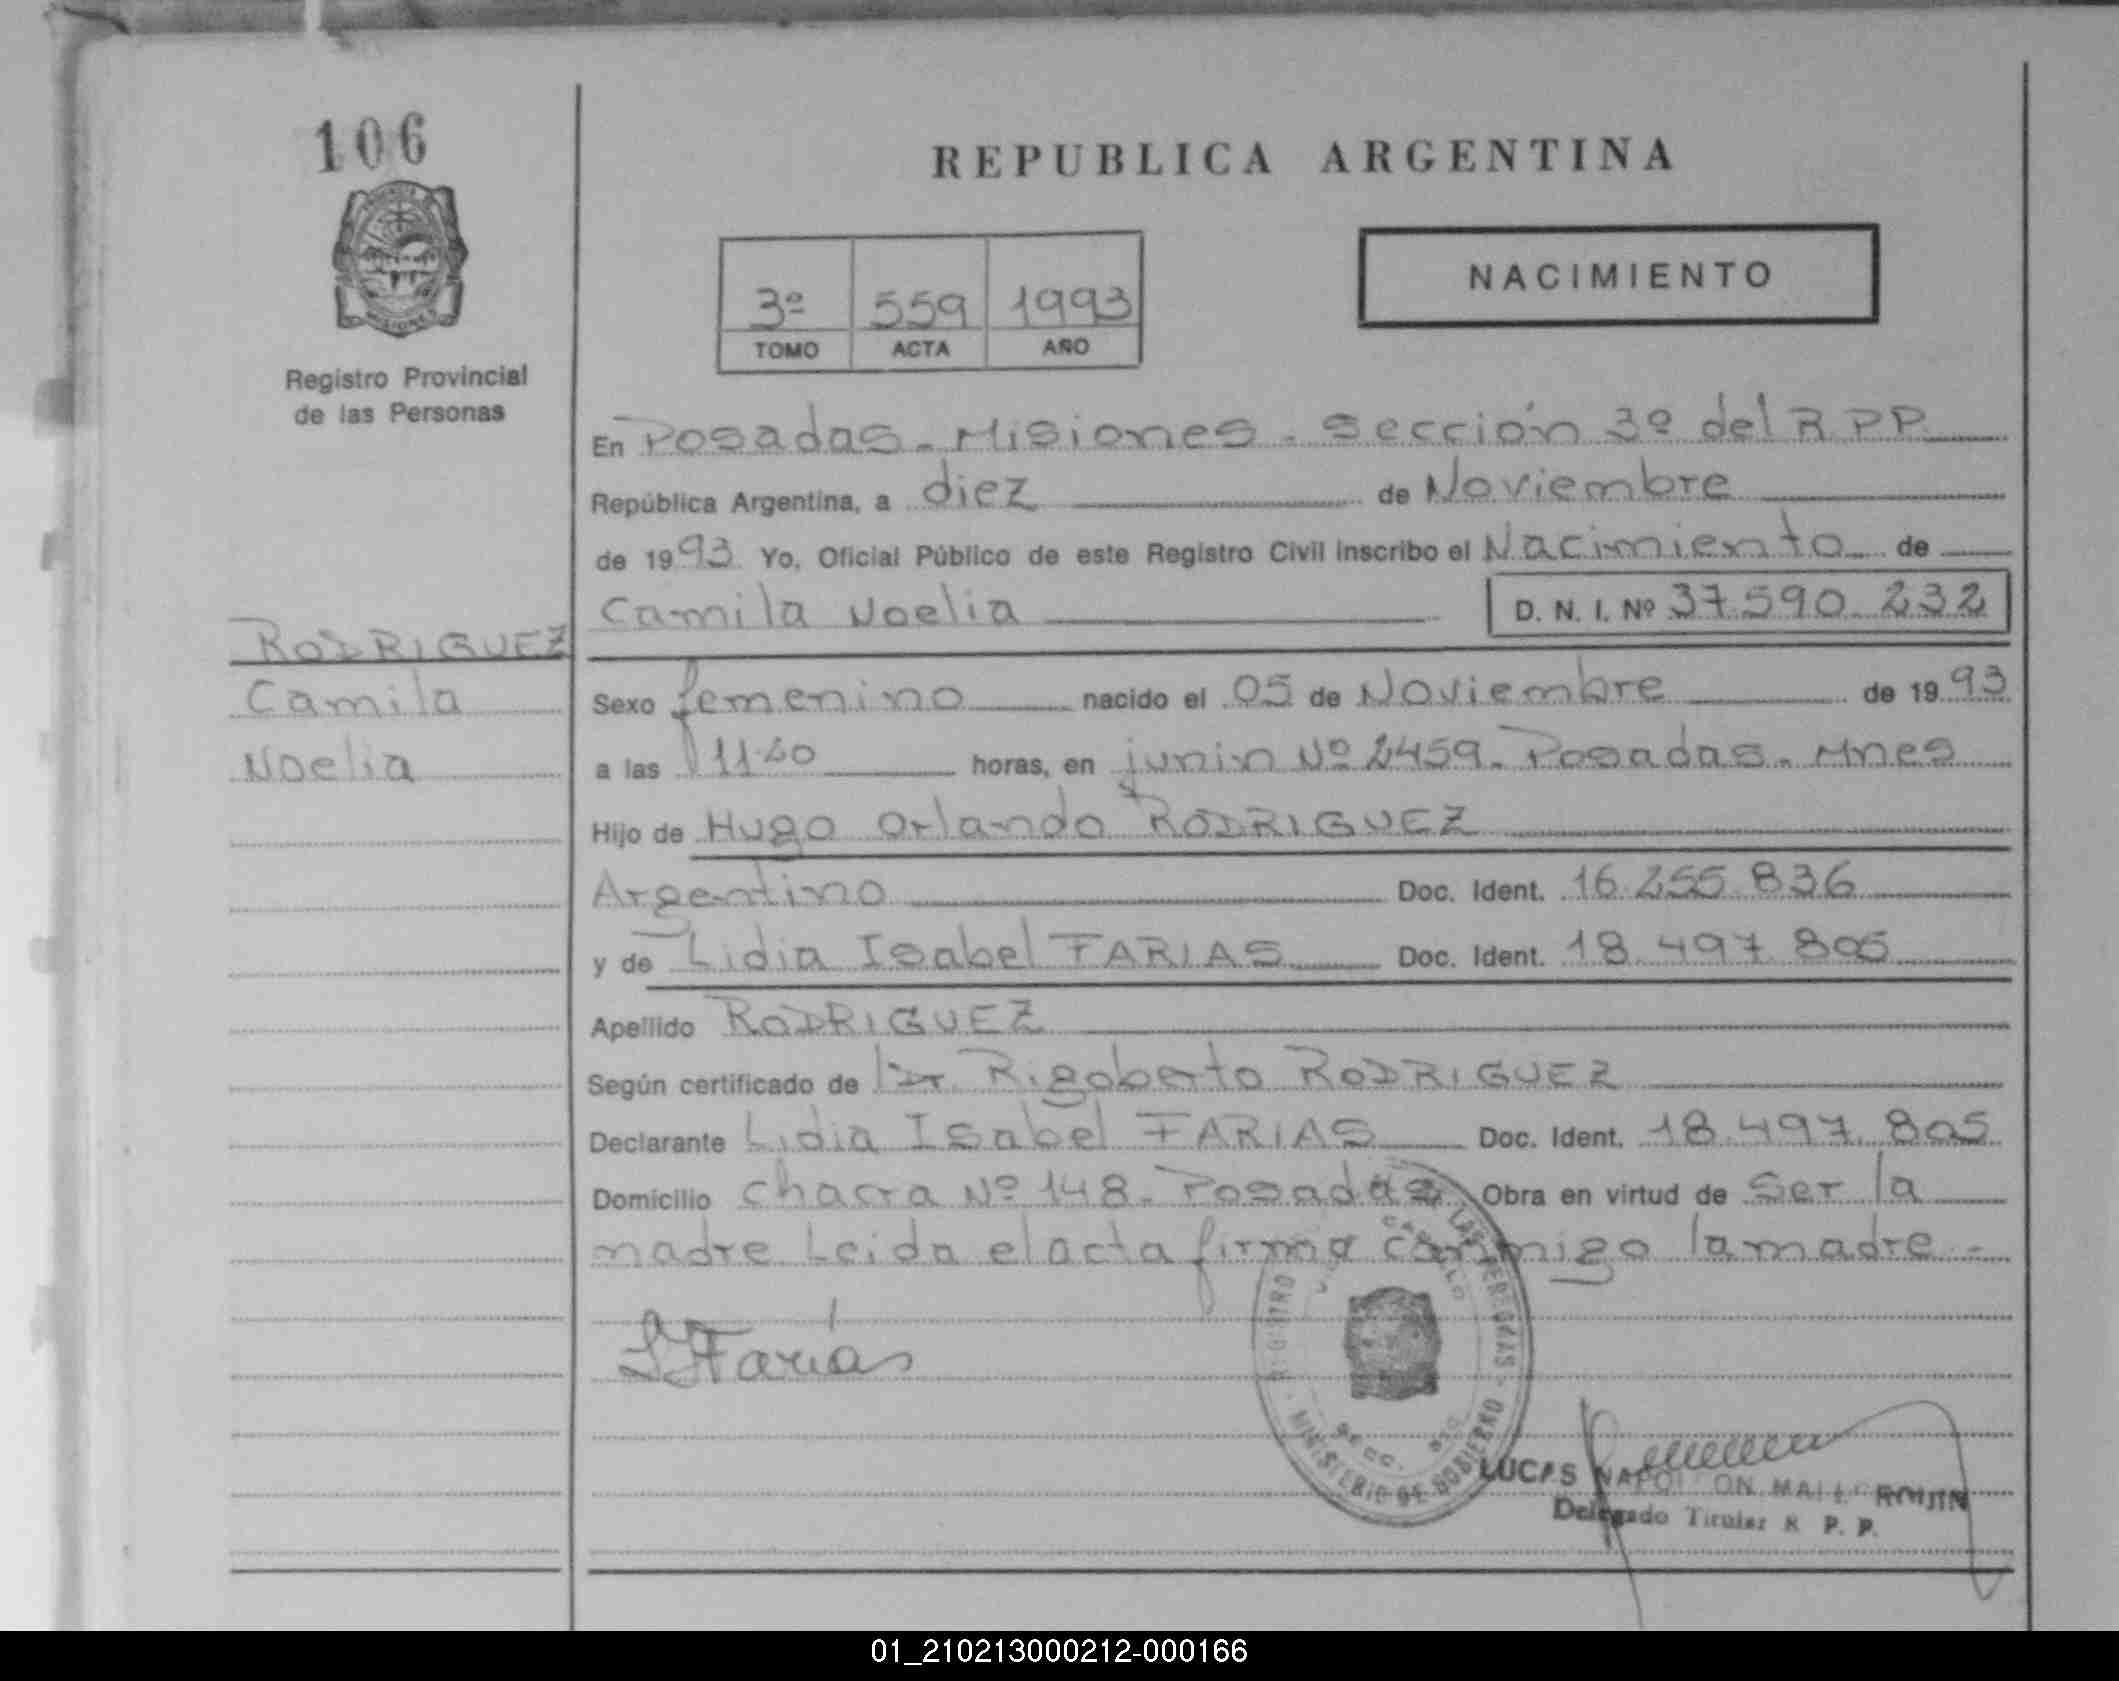 106
REPUBLICA ARGENTINA
NACIMIENTO
3º 559 1993
TOMO ACTA AÑO
MISIONES
Registro Provincial
de las Personas
En Posadas - Misiones - Sección 3º del R P P
República Argentina, a diez de Noviembre
de 1993 Yo, Oficial Público de este Registro Civil inscribo el Nacimiento de
Camila Noelia D. N. I. Nº 37.590.232
RODRIGUEZ
Camila
Noelia
Sexo femenino nacido el 05 de Noviembre de 1993
a las horas, en junin Nº 2459. Posadas - Mnes
Hijo de Hugo Orlando RODRIGUEZ
Argentino Doc. Ident. 16.255.836
y de Lidia Isabel FARIAS Doc. Ident. 18.497.805
Apellido RODRIGUEZ
Según certificado de Dr. Rigoberto RODRIGUEZ
Declarante Lidia Isabel FARIAS Doc. Ident. 18.497.805
Domicilio chacra Nº 148 - Posadas Obra en virtud de Ser la
madre Leida el acta firma conmigo la madre -
LFarías
REGISTRO LAS PERSONAS - MINISTERIO DE GOBIERNO
SECC.
LUCAS NAPOLEON
Delegado Titular R. P. P.
01_210213000212-000166